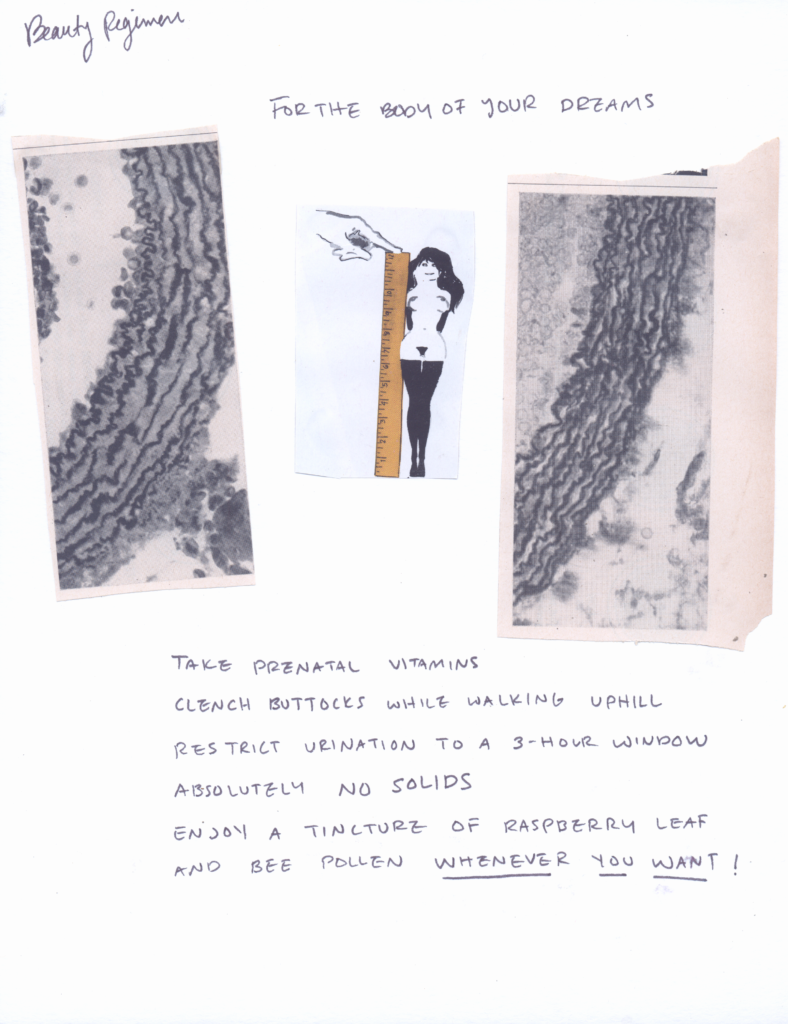 Beauty Regimen
FOR THE BODY OF YOUR DREAMS
TAKE PRENATAL VITAMINS
CLENCH BUTTOCKS WHILE WALKING UPHILL
RESTRICT URINATION TO A 3-HOUR WINDOW
ABSOLUTELY NO SOLIDS
ENJOY A TINCTURE OF RASPBERRY LEAF
AND BEE POLLEN WHENEVER YOU WANT!